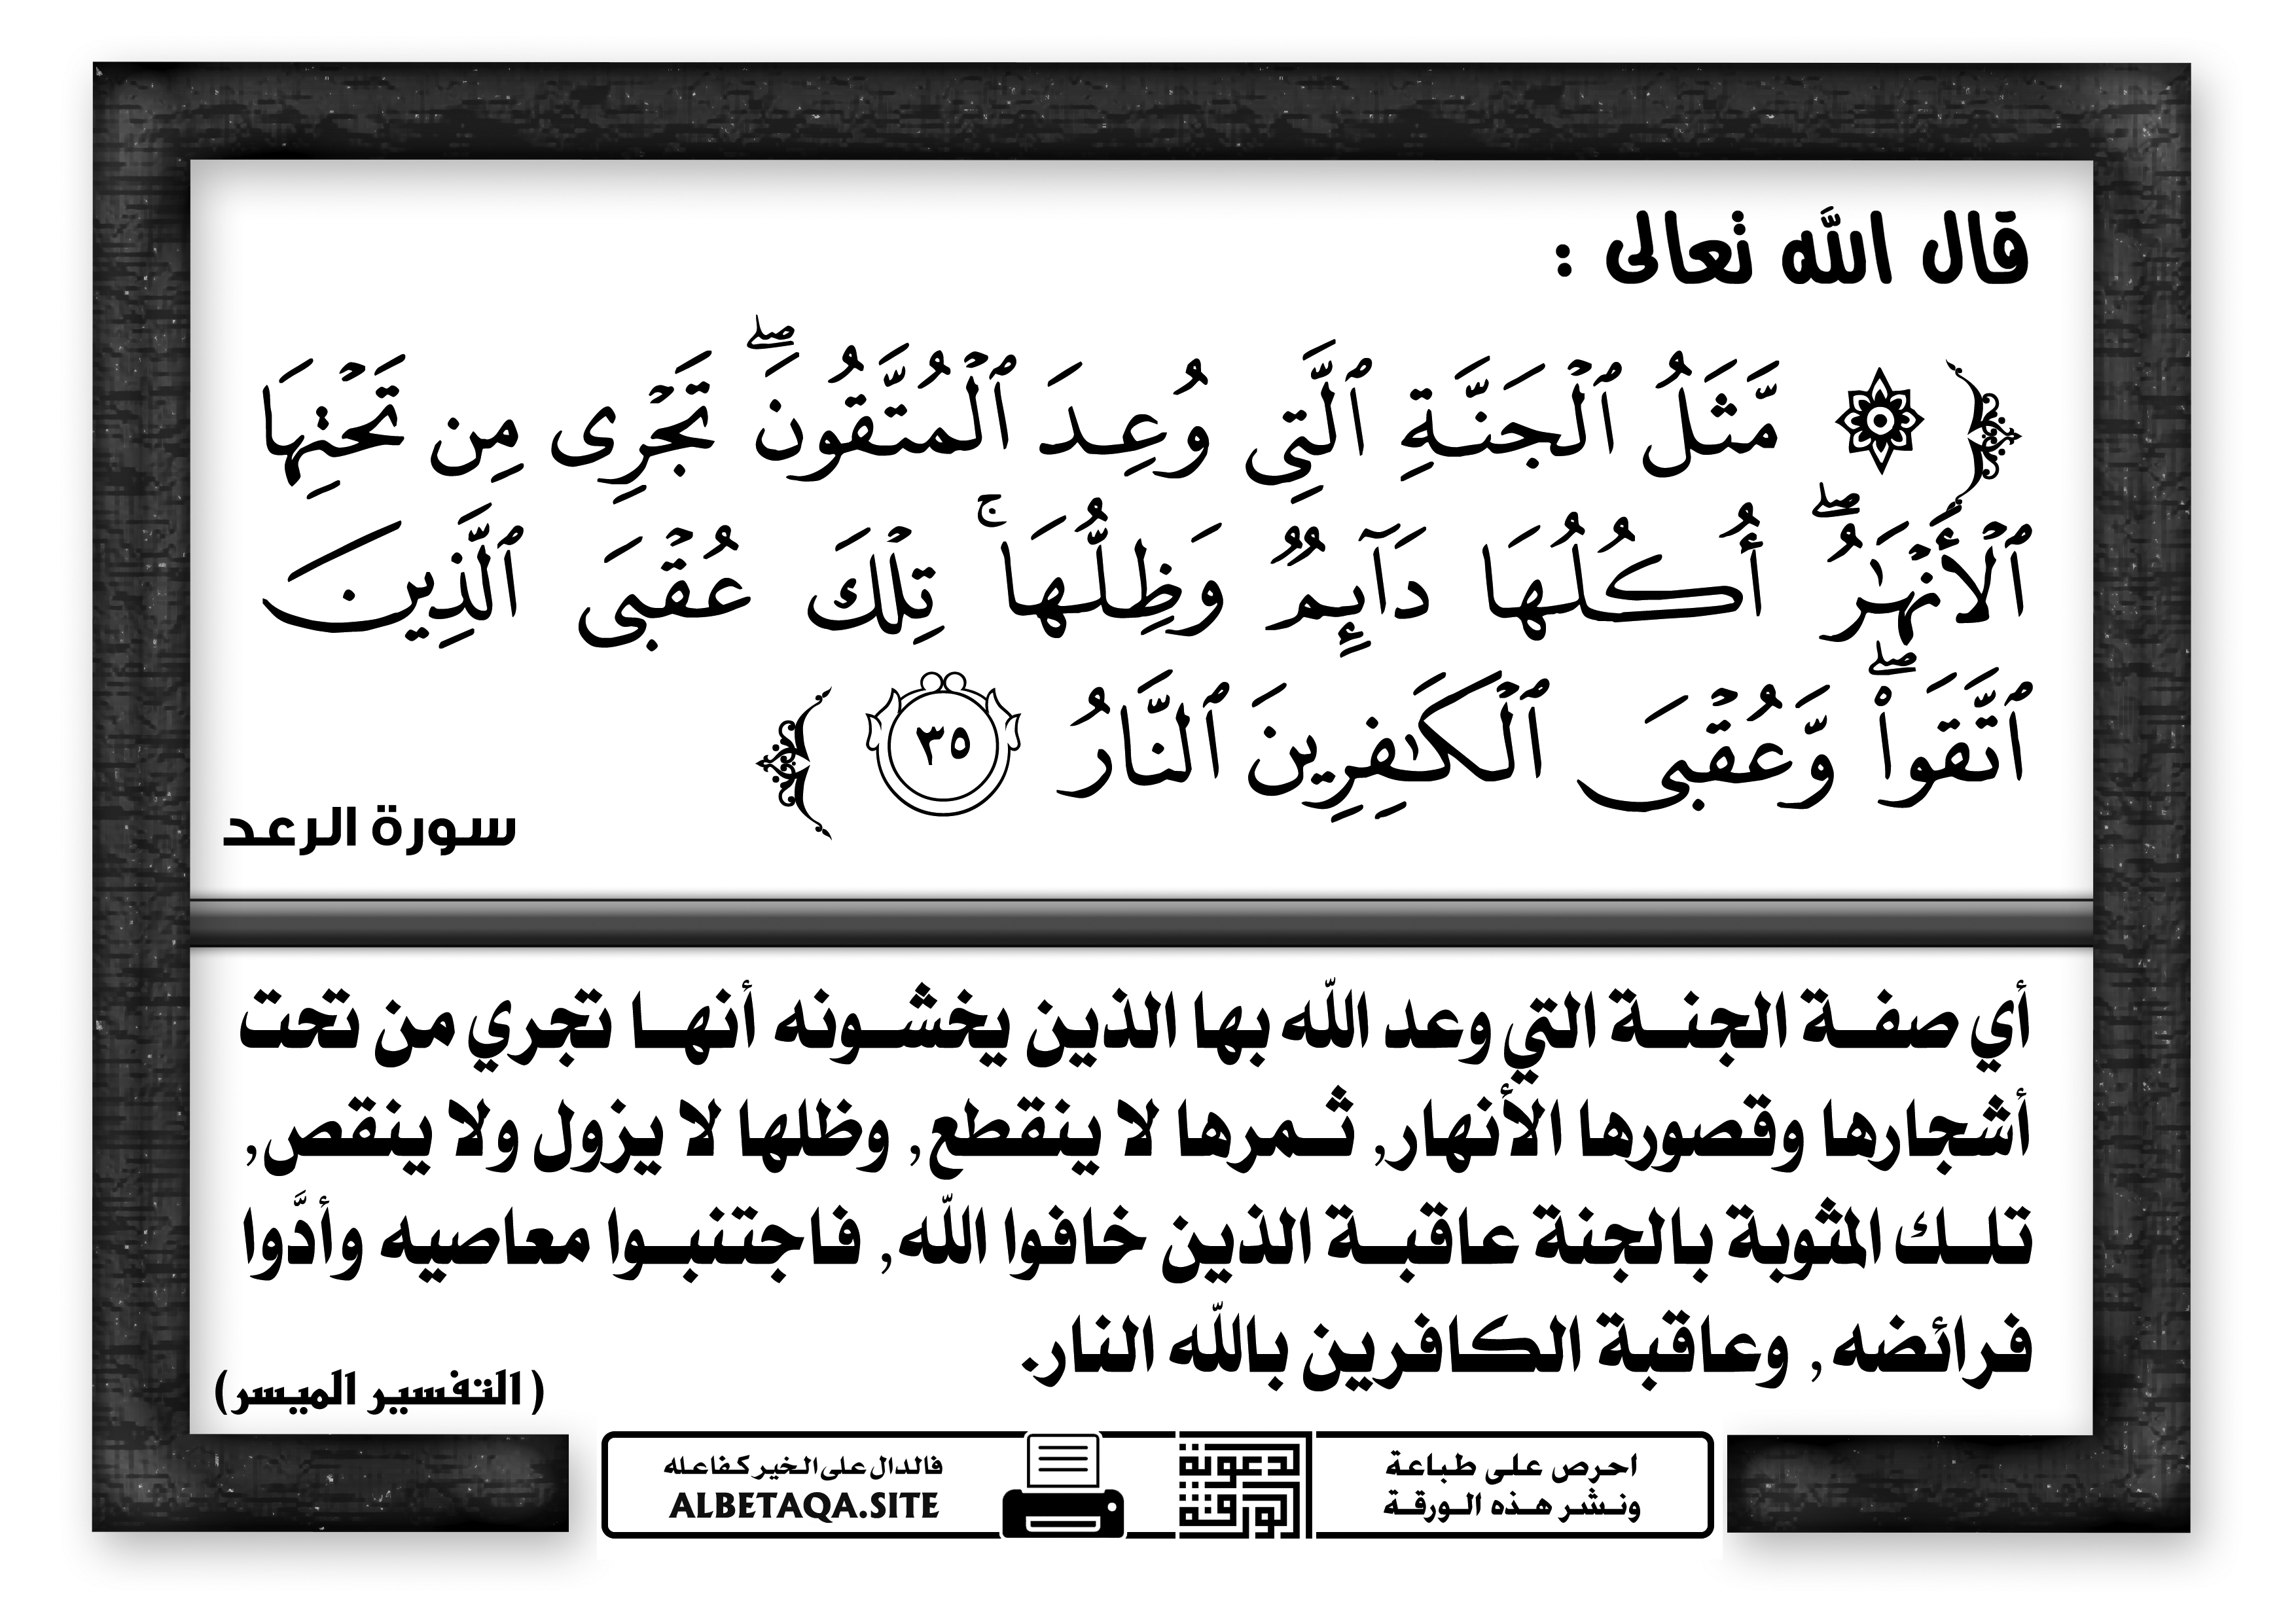 قال الله تعالى :
﴿ ۞ مَّثَلُ ٱلْجَنَّةِ ٱلَّتِى وُعِدَ ٱلْمُتَّقُونَ ۖ تَجْرِى مِن تَحْتِهَا
ٱلْأَنْهَٰرُ ۖ أُكُلُهَا دَآئِمٌ وَظِلُّهَا ۚ تِلْكَ عُقْبَى ٱلَّذِينَ
ٱتَّقَوا۟ ۖ وَّعُقْبَى ٱلْكَٰفِرِينَ ٱلنَّارُ ٣٥ ﴾
سورة الرعد
أي صفة الجنة التي وعد الله بها الذين يخشونه أنها تجري من تحت
أشجارها وقصورها الأنهار, ثمرها لا ينقطع, وظلها لا يزول ولا ينقص,
تلك المثوبة بالجنة عاقبة الذين خافوا الله, فاجتنبوا معاصيه وأدَّوا
فرائضه, وعاقبة الكافرين بالله النار.
( التفسير الميسر)
احرص على طباعة
ونشر هذه الورقة
الدعوية
الورقة
فالدال على الخير كفاعله
ALBETAQA.SITE